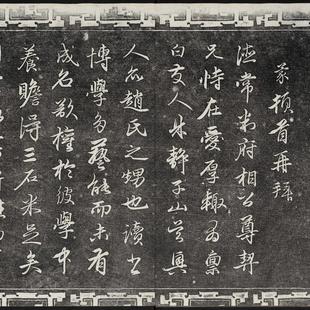 蒙頓首再拜
德常判府相公尊契
兄恃在愛厚輒有禀
白友人朱靜子山
人亦趙氏之甥也讀書
博學多藝能而未有
成名欲權於彼學中
養贍得三石米足矣